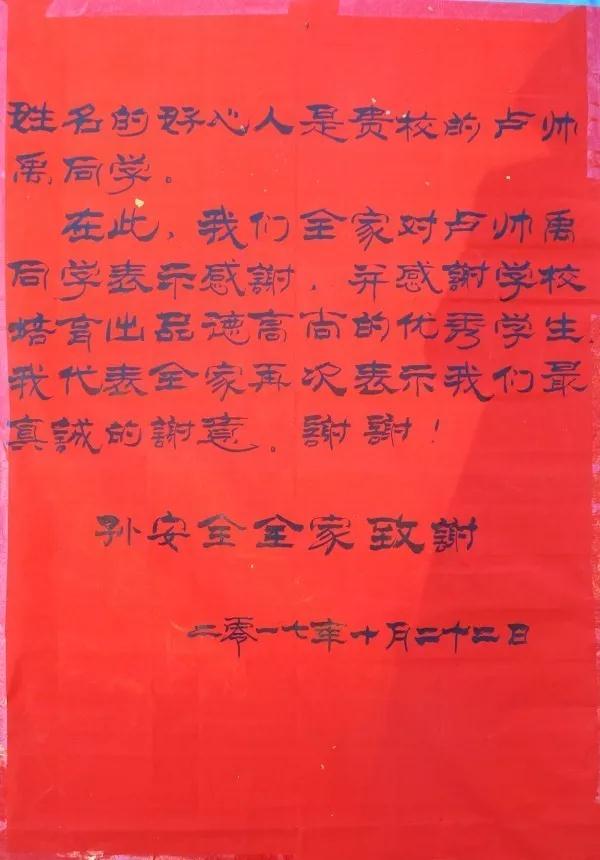 姓名的好心人是贵校的卢帅
禹同学。
在此，我们全家对卢帅禹
同学表示感謝，并感謝学校
培育出品德高尚的优秀学生
我代表全家再次表示我们最
真誠的謝意。謝謝！
孙安全全家致謝
二零一七年十月二十二日